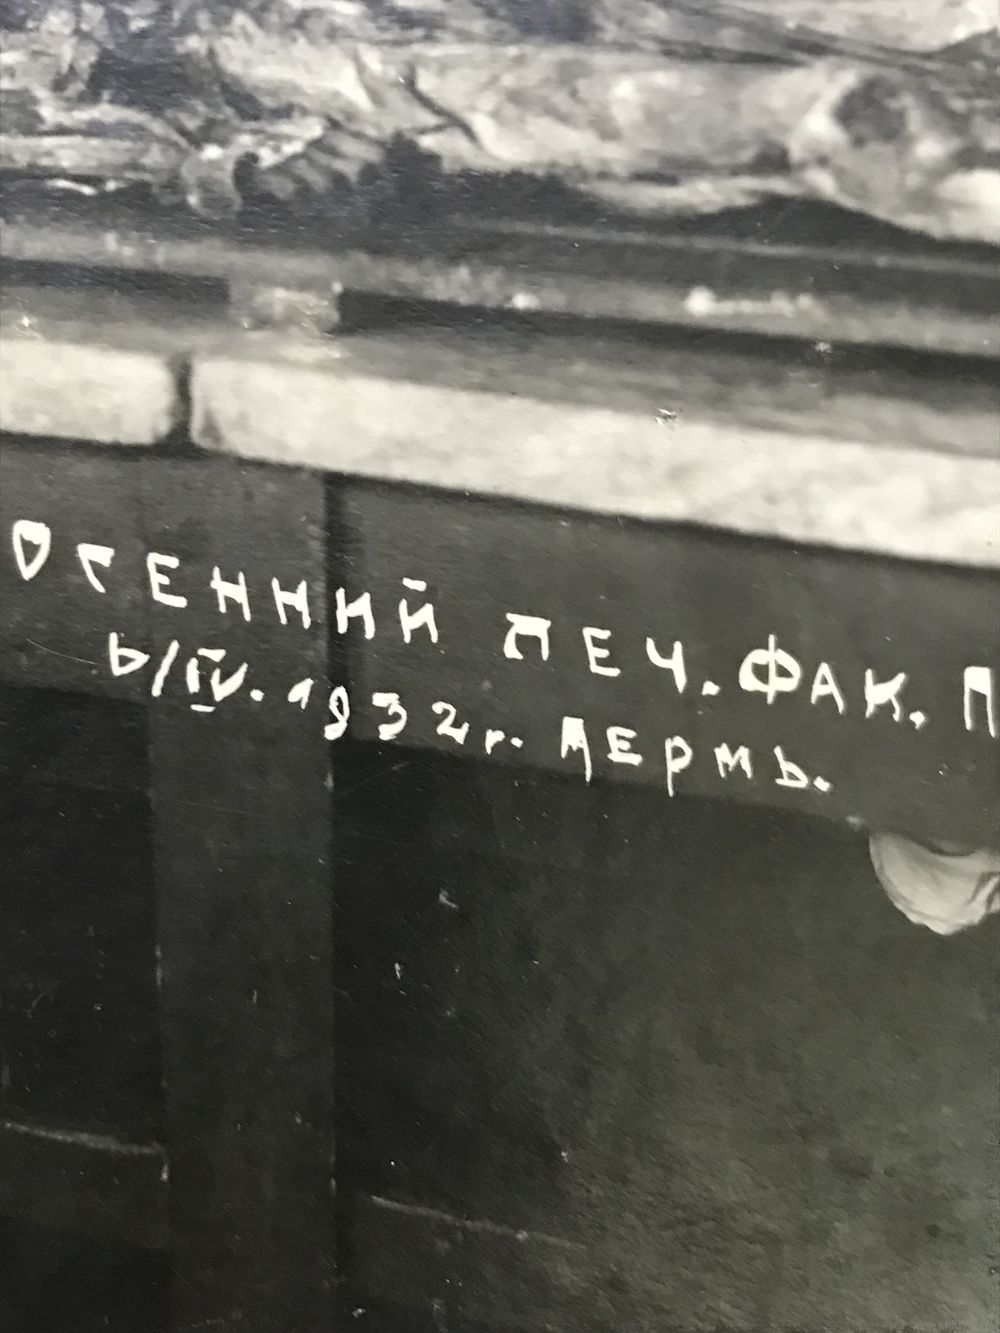 ОСЕННИЙ ЛЕЧ. ФАК. П
6/IV. 1932г. ПЕРМЬ.